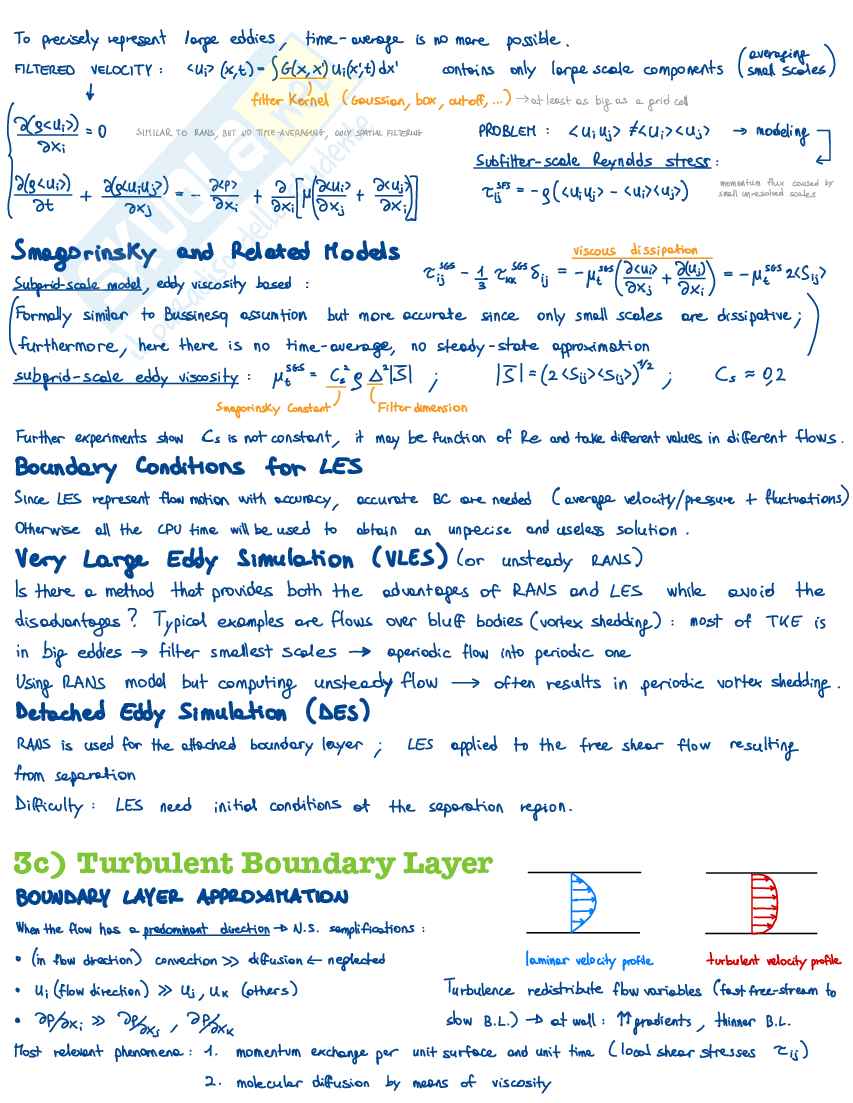 To precisely represent large eddies, time-average is no more possible.
FILTERED VELOCITY: <ui>(x,t) = ∫G(x,x')ui(x',t)dx' contains only large scale components (averaging small scales)
filter Kernel (Gaussian, box, cutoff, ...) → at least as big as a grid cell
∂(ρ<ui>)/∂xi = 0 SIMILAR TO RANS, BUT NO TIME-AVERAGING, ONLY SPATIAL FILTERING
PROBLEM: <uiuj> ≠ <ui><uj> → modeling
Subfilter-scale Reynolds stress:
∂(ρ<ui>)/∂t + ∂(ρ<uiuj>)/∂xj = - ∂<p>/∂xi + ∂/∂xi[μ(∂<ui>/∂xj + ∂<uj>/∂xi)]
τij^SFS = -ρ(<uiuj> - <ui><uj>) momentum flux caused by small unresolved scales
Smagorinsky and Related Models
viscous dissipation
Subgrid-scale model, eddy viscosity based: τij^SGS - 1/3 τkk^SGS δij = -μt^SGS(∂<ui>/∂xj + ∂(uj)/∂xi) = -μt^SGS 2<Sij>
(Formally similar to Bussinesq assumtion but more accurate since only small scales are dissipative;
furthermore, here there is no time-average, no steady-state approximation)
subgrid-scale eddy viscosity: μt^SGS = Cs² ρ Δ²|S̄| ; |S̄| = (2<Sij><Sij>)^1/2 ; Cs ≈ 0,2
Smagorinsky Constant Filter dimension
Further experiments show Cs is not constant, it may be function of Re and take different values in different flows.
Boundary Conditions for LES
Since LES represent flow motion with accuracy, accurate BC are needed (average velocity/pressure + fluctuations)
Otherwise all the CPU time will be used to obtain an unprecise and useless solution.
Very Large Eddy Simulation (VLES) (or unsteady RANS)
Is there a method that provides both the advantages of RANS and LES while avoid the
disadvantages? Typical examples are flows over bluff bodies (vortex shedding): most of TKE is
in big eddies → filter smallest scales → aperiodic flow into periodic one
Using RANS model but computing unsteady flow → often results in periodic vortex shedding.
Detached Eddy Simulation (DES)
RANS is used for the attached boundary layer; LES applied to the free shear flow resulting
from separation
Difficulty: LES need initial conditions at the separation region.
3c) Turbulent Boundary Layer
BOUNDARY LAYER APPROXIMATION
When the flow has a predominant direction → N.S. semplifications:
• (in flow direction) convection >> diffusion ← neglected
• ui (flow direction) >> uj, uk (others)
• ∂P/∂xi >> ∂P/∂xj, ∂P/∂xk
laminar velocity profile
turbulent velocity profile
Turbulence redistribute flow variables (fast free-stream to
slow B.L.) → at wall: ⇈gradients, thinner B.L.
Most relevant phenomena: 1. momentum exchange per unit surface and unit time (local shear stresses τij)
2. molecular diffusion by means of viscosity